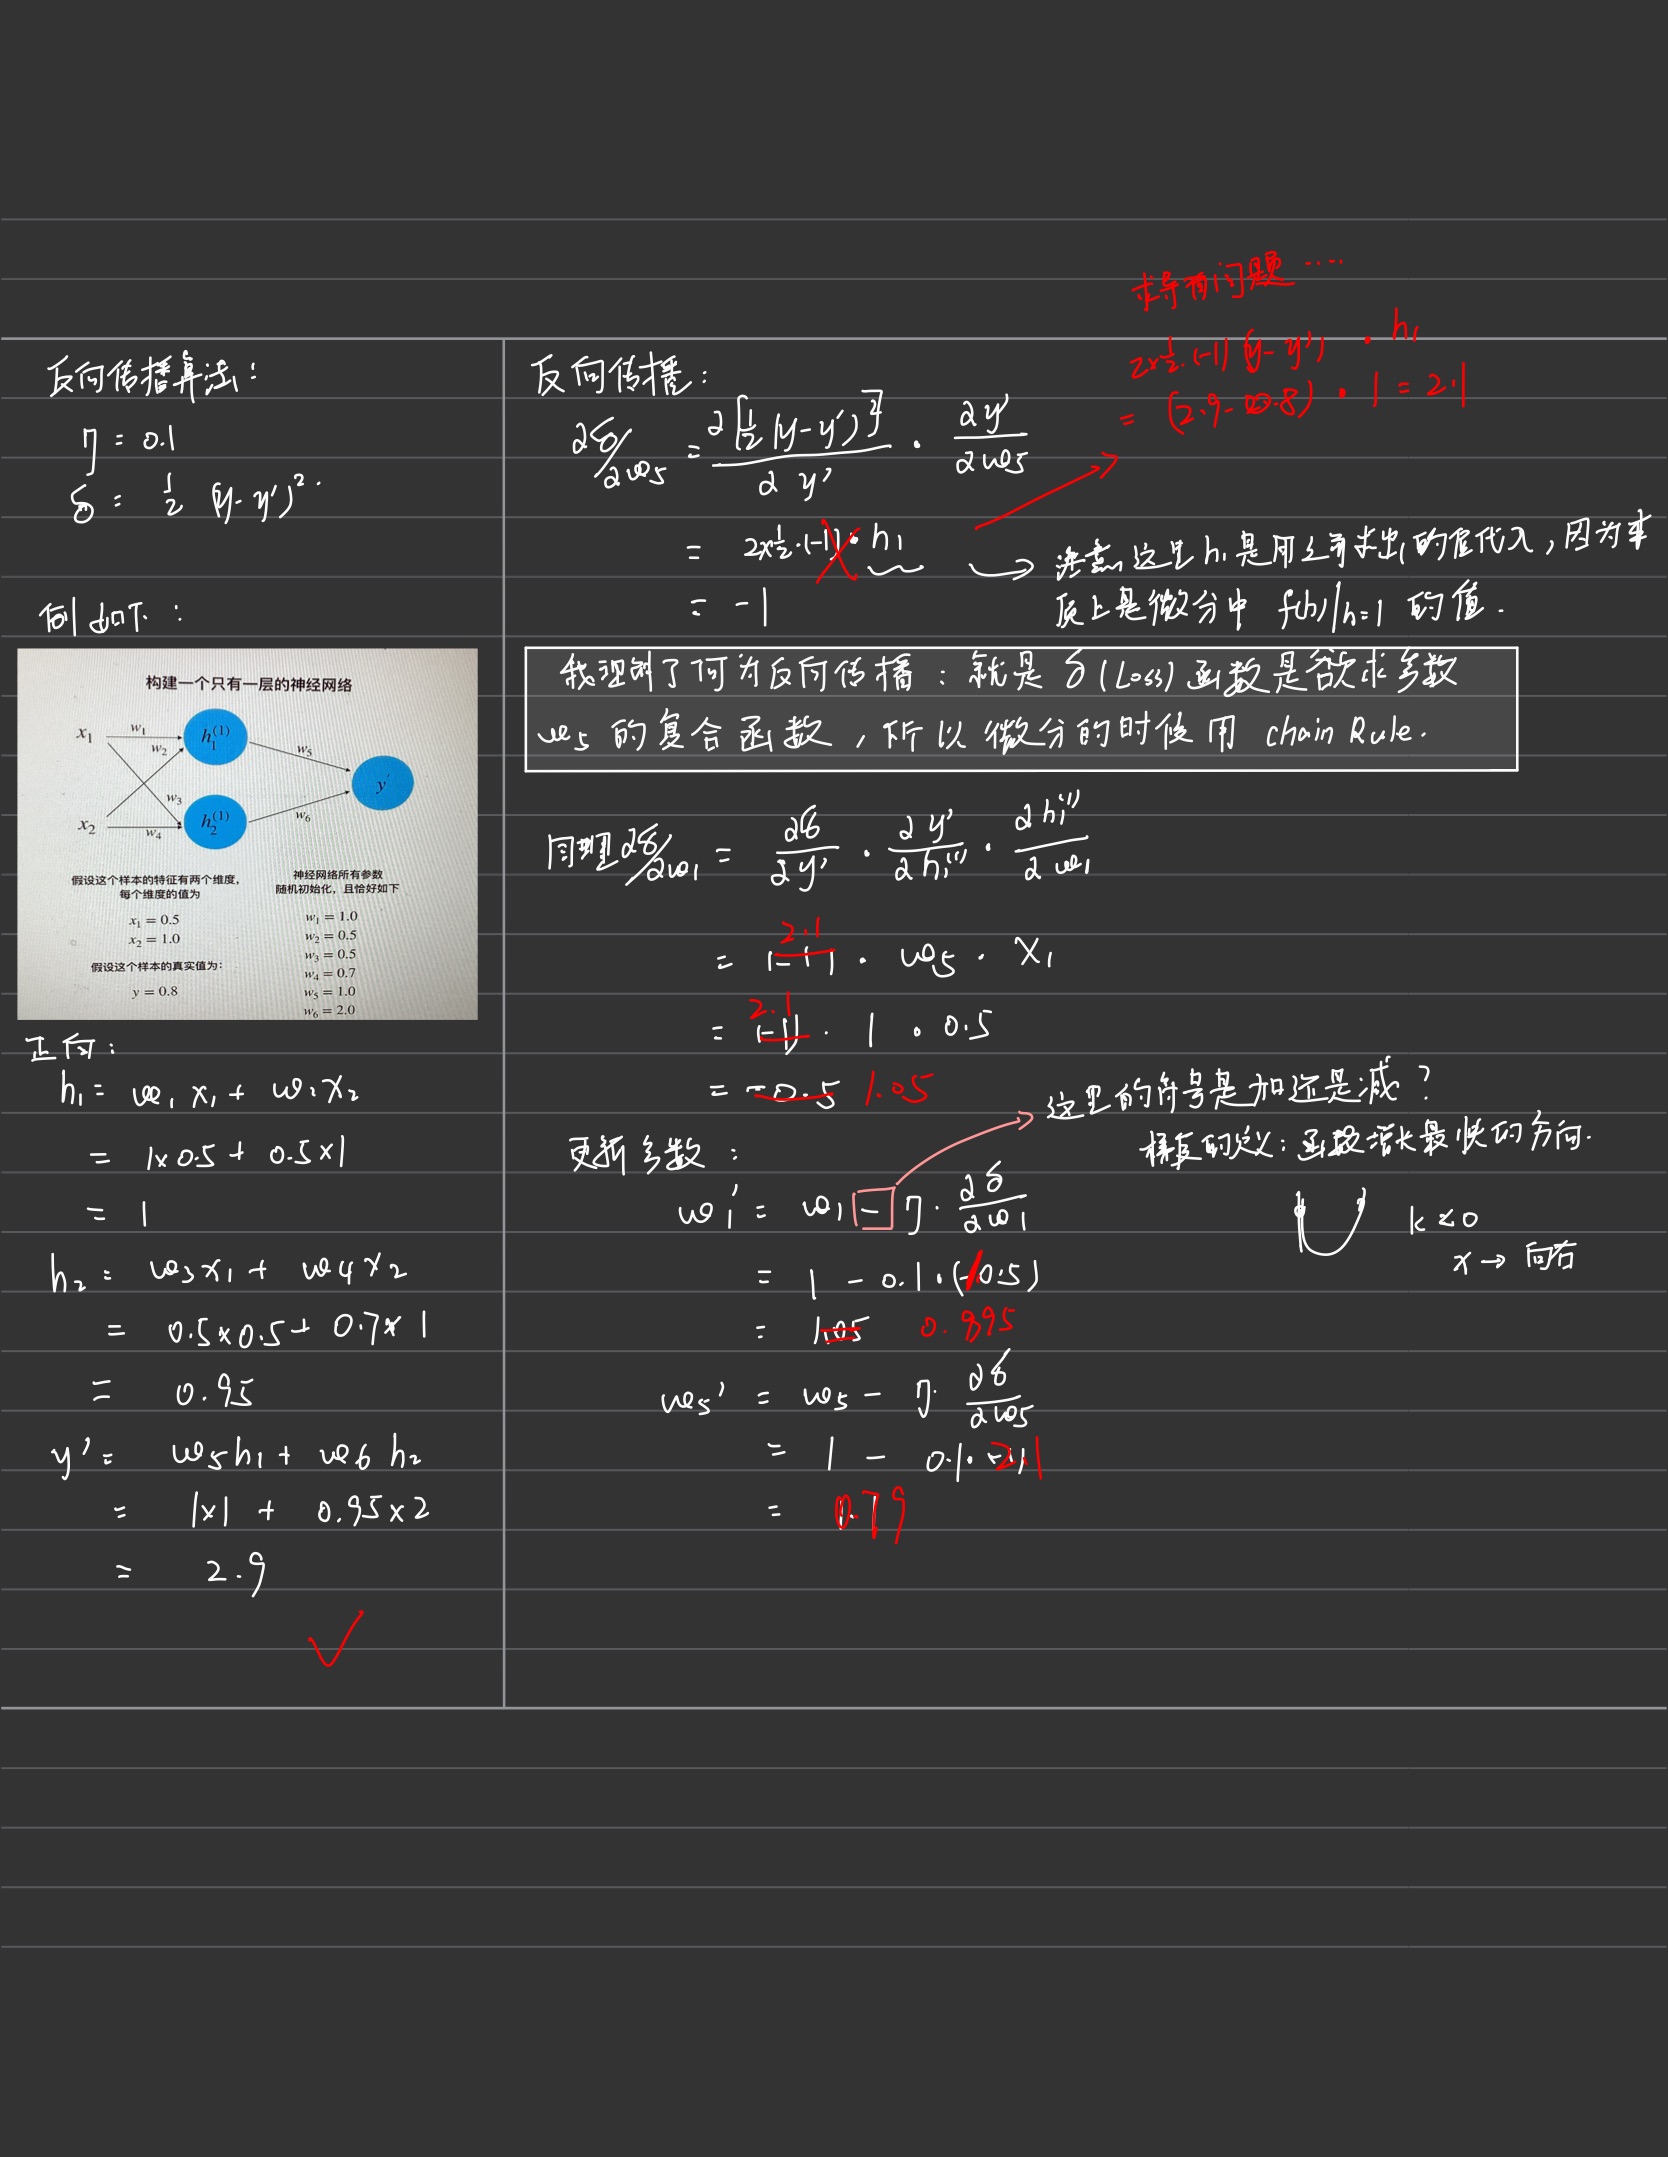 反向传播算法:
η = 0.1
δ = 1/2 (y-y')².
例如下:
构建一个只有一层的神经网络
x₁ w₁ w₂ h₁⁽¹⁾ w₅
y'
x₂ w₃ w₄ h₂⁽¹⁾ w₆
假设这个样本的特征有两个维度,
每个维度的值为
x₁ = 0.5
x₂ = 1.0
假设这个样本的真实值为:
y = 0.8
神经网络所有参数
随机初始化,且恰好如下
w₁ = 1.0
w₂ = 0.5
w₃ = 0.5
w₄ = 0.7
w₅ = 1.0
w₆ = 2.0
正向:
h₁ = w₁x₁ + w₂x₂
= 1×0.5 + 0.5×1
= 1
h₂ = w₃x₁ + w₄x₂
= 0.5×0.5 + 0.7×1
= 0.95
y' = w₅h₁ + w₆h₂
= 1×1 + 0.95×2
= 2.9
求导有问题 ....
2×1/2·(-1)(y-y') · h₁
= (2.9-0.8) · 1 = 2.1
反向传播:
∂δ/∂w₅ = ∂[1/2(y-y')²]/∂y' · ∂y'/∂w₅
= 2×1/2·(-1)· h₁
= -1
注意这里h₁是用之前求出的值代入,因为本
质上是微分中 f(h)|h=1 的值.
我理解了何为反向传播:就是δ(Loss)函数是欲求参数
w₅的复合函数,所以微分的时候用 chain Rule.
同理∂δ/∂w₁ = ∂δ/∂y' · ∂y'/∂h₁⁽¹⁾ · ∂h₁⁽¹⁾/∂w₁
2.1
= (-1) · w₅ · x₁
2.1
= (-1) · 1 · 0.5
= -0.5 1.05
这里的符号是加还是减?
梯度的定义:函数增长最快的方向.
k<0
x→向右
更新参数:
w₁' = w₁ - η · ∂δ/∂w₁
= 1 - 0.1·(-0.5)
= 1.05 0.895
w₅' = w₅ - η· ∂δ/∂w₅
= 1 - 0.1· 2.1
= 0.79